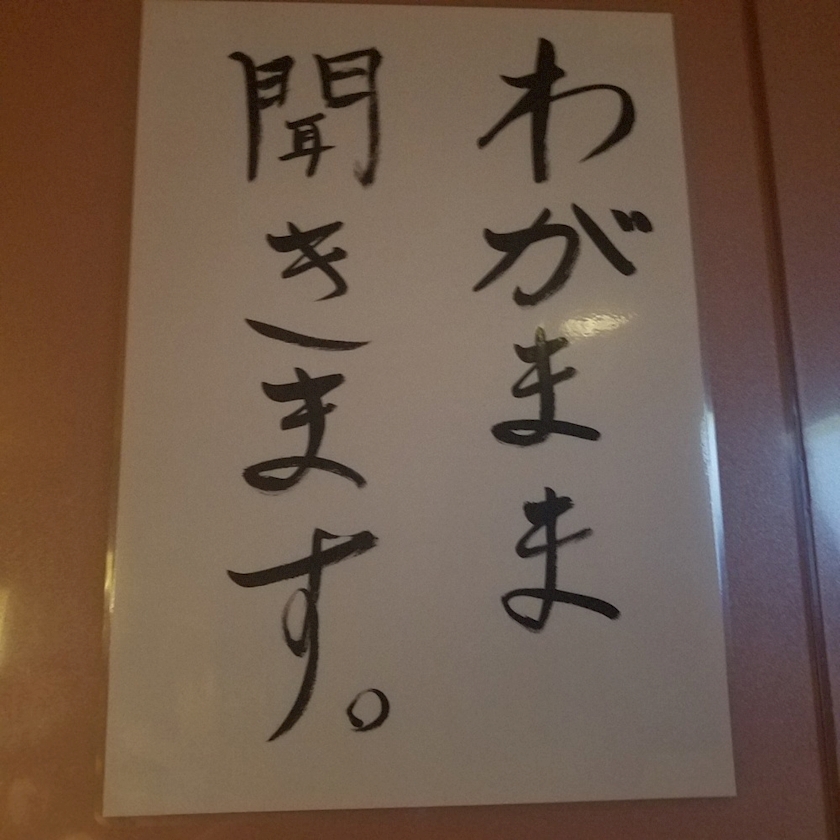 わがまま
聞きます。